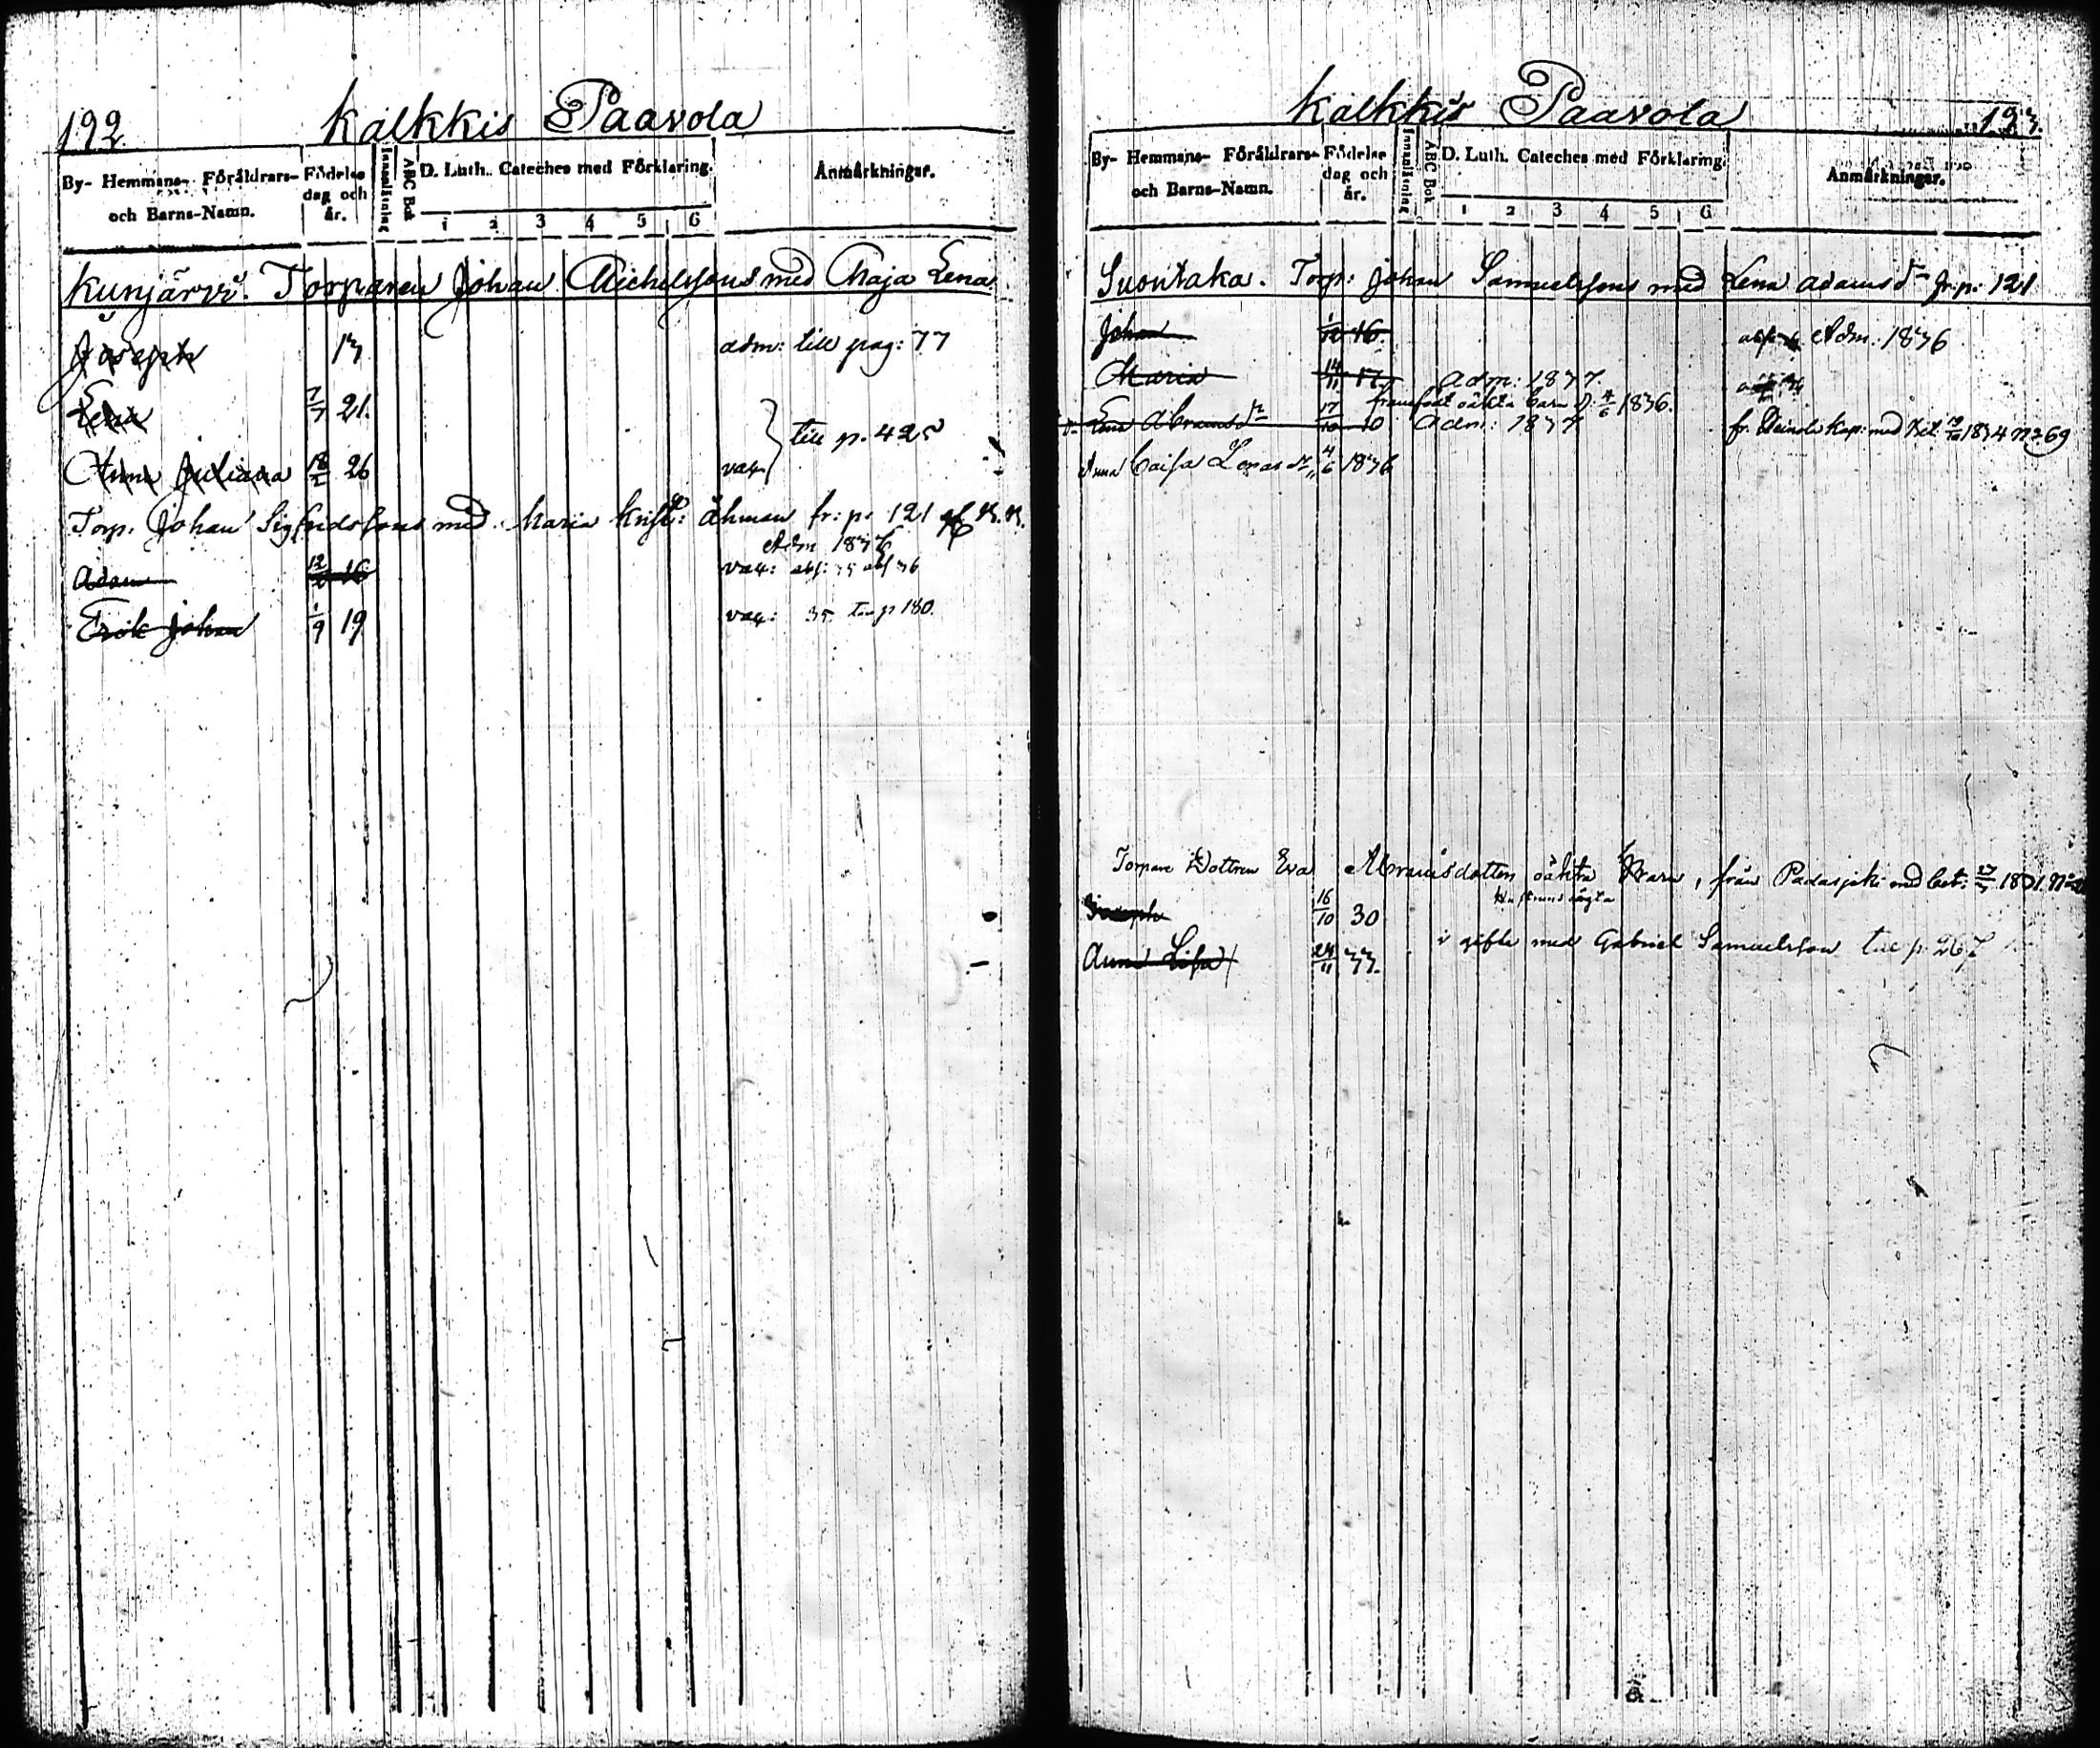 192.
Kalkkis Paavola
By- Hemmans- Föräldrars-
och Barns-Namn.
Födelse
dag och
år.
Innanläsning
ABC Bok
D. Luth. Cateches med Förklaring.
1 2 3 4 5 6
Anmärkningar.
Kunjärvi. Torparen Johan Michelssons med Maja Lena
Joseph 13 adm: till pag: 77
Lena 7/7 21.
till p. 425
Anna Juliana 26 vac
Torp. Johan Sigfridssons med Maria Krist: Åhman fr: p: 121
Adm 1836
Adam 16 vac: abs: 35 abs 36
Erik Johan 1/9 19 vac: 35 p 180.
Kalkkis Paavola
193.
By- Hemmans- Föräldrars-
och Barns-Namn.
Födelse
dag och
år.
Innanläsning
ABC Bok
D. Luth. Cateches med Förklaring.
1 2 3 4 5 6
Anmärkningar.
Suontaka. Torp: Johan Samuelssons med Lena Adamsdr fr: p: 121
Johan 16. Adm: 1836
Maria 14/11 adm: 1837.
oäkta barn d. 4/6 1836.
Lena Abramsdr 17/10 10 adm: 1837 fr. Heinola Kap: med Bet. 1834 No 69
Anna Caisa Lenasdr 4/6 1836
Torpare Dottren Eva Abramsdotters oäkta Barn, från Padasjoki med bet: 1831. No
Joseph 16/10 30
Anna Lisa 24/11 33. i gifte med Gabriel Samuelsson till p. 267